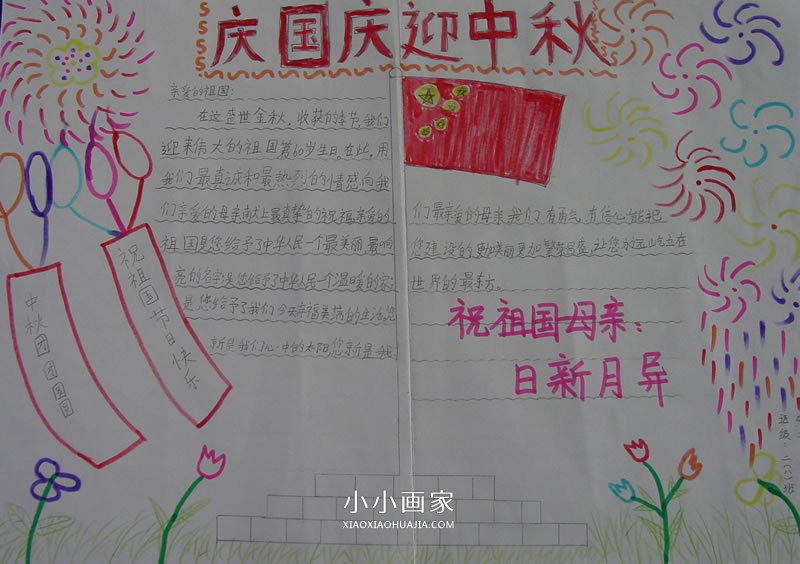 庆国庆迎中秋
亲爱的祖国：
在这盛世金秋，收获的季节，我们
迎来伟大的祖国第60岁生日，在此，用
我们最真诚和最热烈的情感向我
们亲爱的母亲献上最真挚的祝福，亲爱的
祖国是您给予了中华人民一个最美丽最响
亮的名字是您给予了中华人民一个温暖的家；
是您给予了我们今天幸福美落的生活。您
就是我们心中的太阳您就是我
们最亲爱的母亲我们有勇气，有信心能把
您建设的更加美丽更加繁荣昌盛，让您永远屹立在
世界的最东方。
祝祖国母亲：
日新月异
祝祖国节日快乐
中秋团团圆圆
班级：二（八）班
小小画家
XIAOXIAOHUAJIA.COM